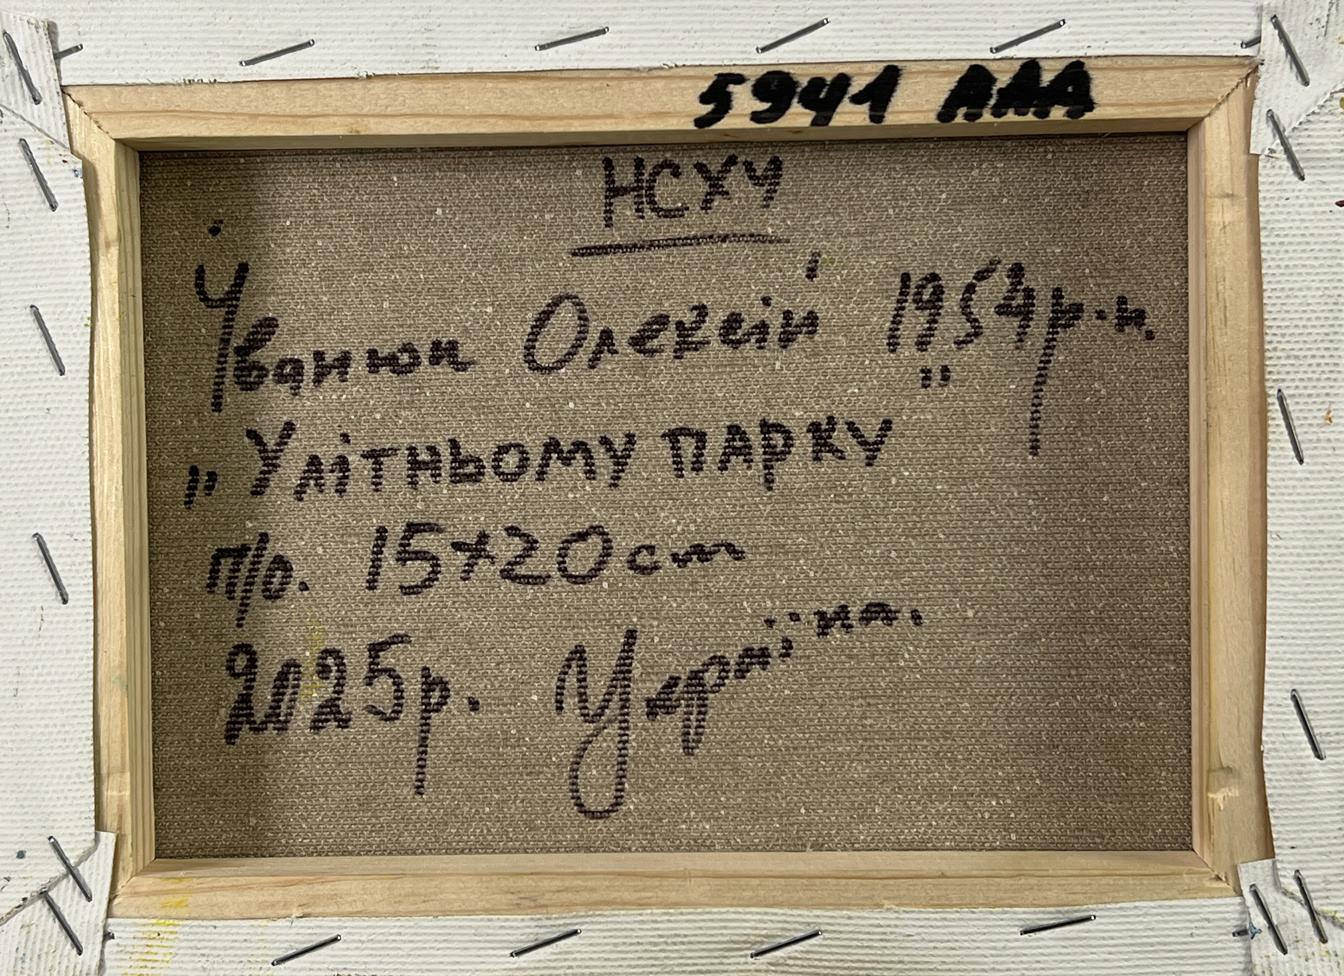 5941 AAA
НСХУ
Іванюк Олексій 1954р.н.
„Улітньому парку"
п/о. 15×20cm
2025р. Україна.